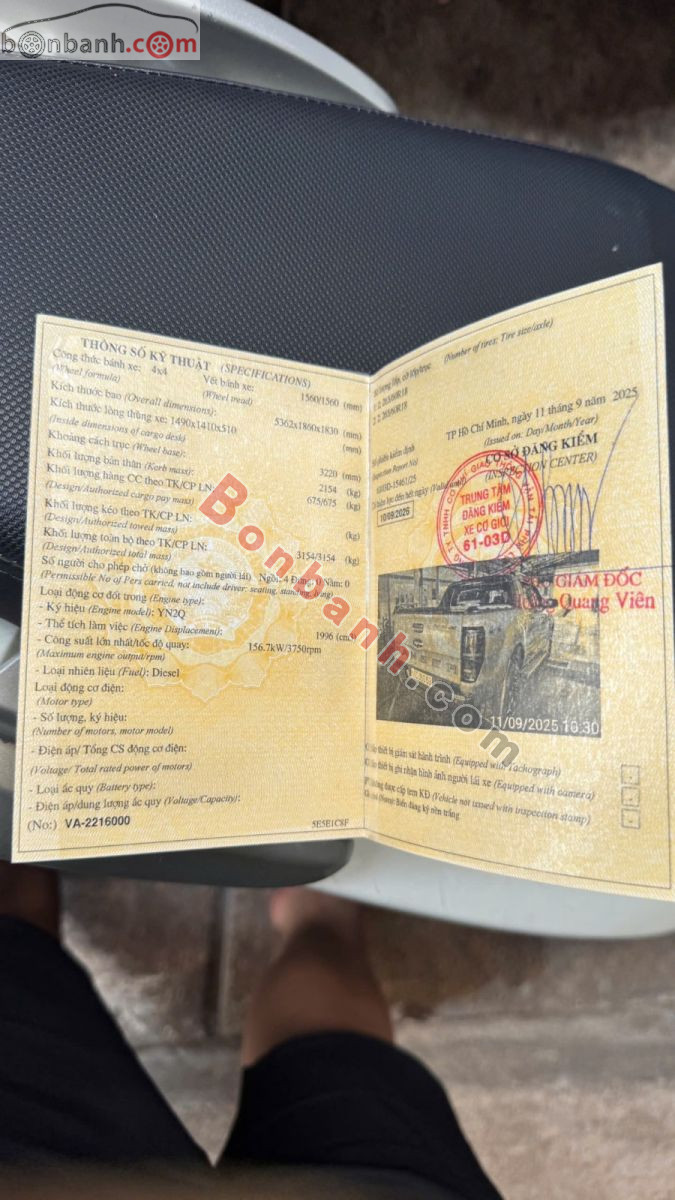 bonbanh.com
THÔNG SỐ KỸ THUẬT (SPECIFICATIONS)
Công thức bánh xe: 4x4 Vết bánh xe: 1560/1560 (mm)
(Wheel formula) (Wheel tread)
Kích thước bao (Overall dimensions): 5362x1860x1830 (mm)
Kích thước lòng thùng xe: 1490x1410x510 (mm)
(Inside dimensions of cargo desk)
Khoảng cách trục (Wheel base): 3220 (mm)
Khối lượng bản thân (Kerb mass): 2154 (kg)
Khối lượng hàng CC theo TK/CP LN: 675/675 (kg)
(Design/Authorized cargo pay mass)
Khối lượng kéo theo TK/CP LN: (kg)
(Design/Authorized towed mass)
Khối lượng toàn bộ theo TK/CP LN: 3154/3154 (kg)
(Design/Authorized total mass)
Số người cho phép chở (không bao gồm người lái) Ngồi: 4 Đứng: 0 Nằm: 0
(Permissible No of Pers carried, not include driver: seating, standing, lying)
Loại động cơ đốt trong (Engine type):
- Ký hiệu (Engine model): YN2Q
- Thể tích làm việc (Engine Displacement): 1996 (cm³)
- Công suất lớn nhất/tốc độ quay: 156.7kW/3750rpm
(Maximum engine output/rpm)
- Loại nhiên liệu (Fuel): Diesel
Loại động cơ điện:
(Motor type)
- Số lượng, ký hiệu:
(Number of motors, motor model)
- Điện áp/ Tổng CS động cơ điện:
(Voltage/ Total rated power of motors)
- Loại ắc quy (Battery type):
- Điện áp/dung lượng ắc quy (Voltage/Capacity):
(No:) VA-2216000 5E5E1C8F
Số lượng lốp, cỡ lốp/trục (Number of tires: Tire size/axle)
1: 2: 265/60R18
2: 2: 265/60R18
TP Hồ Chí Minh, ngày 11 tháng 9 năm 2025
(Issued on: Day/Month/Year)
Số phiếu kiểm định
(Inspection Report No)
CƠ SỞ ĐĂNG KIỂM
(INSPECTION CENTER)
6103D-15461/25
Có hiệu lực đến hết ngày (Valid until)
10/09/2026
TRUNG TÂM
ĐĂNG KIỂM
XE CƠ GIỚI
61-03D
GIÁM ĐỐC
Quang Viên
11/09/2025 10:30
thiết bị giám sát hành trình (Equipped with Tachograph)
thiết bị ghi nhận hình ảnh người lái xe (Equipped with camera)
Không được cấp tem KĐ (Vehicle not issued with inspection stamp)
Biển đăng ký nền trắng
Bonbanh.com